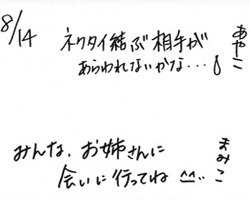 8/14
ネクタイ結ぶ相手が
あらわれないかな…
あやこ
みんな、お姉さんに
会いに行ってね ^^..
まみこ